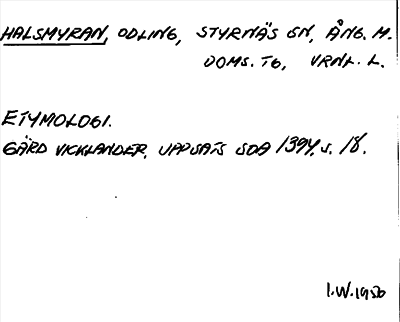 HALSMYRAN, ODLING, STYRNÄS SN, ÅNG. M.
DOMS. TG, VRNL. L.
ETYMOLOGI.
GÄRD VICKLANDER, UPPSATS SOA 1394, s. 18.
I.W. 1956